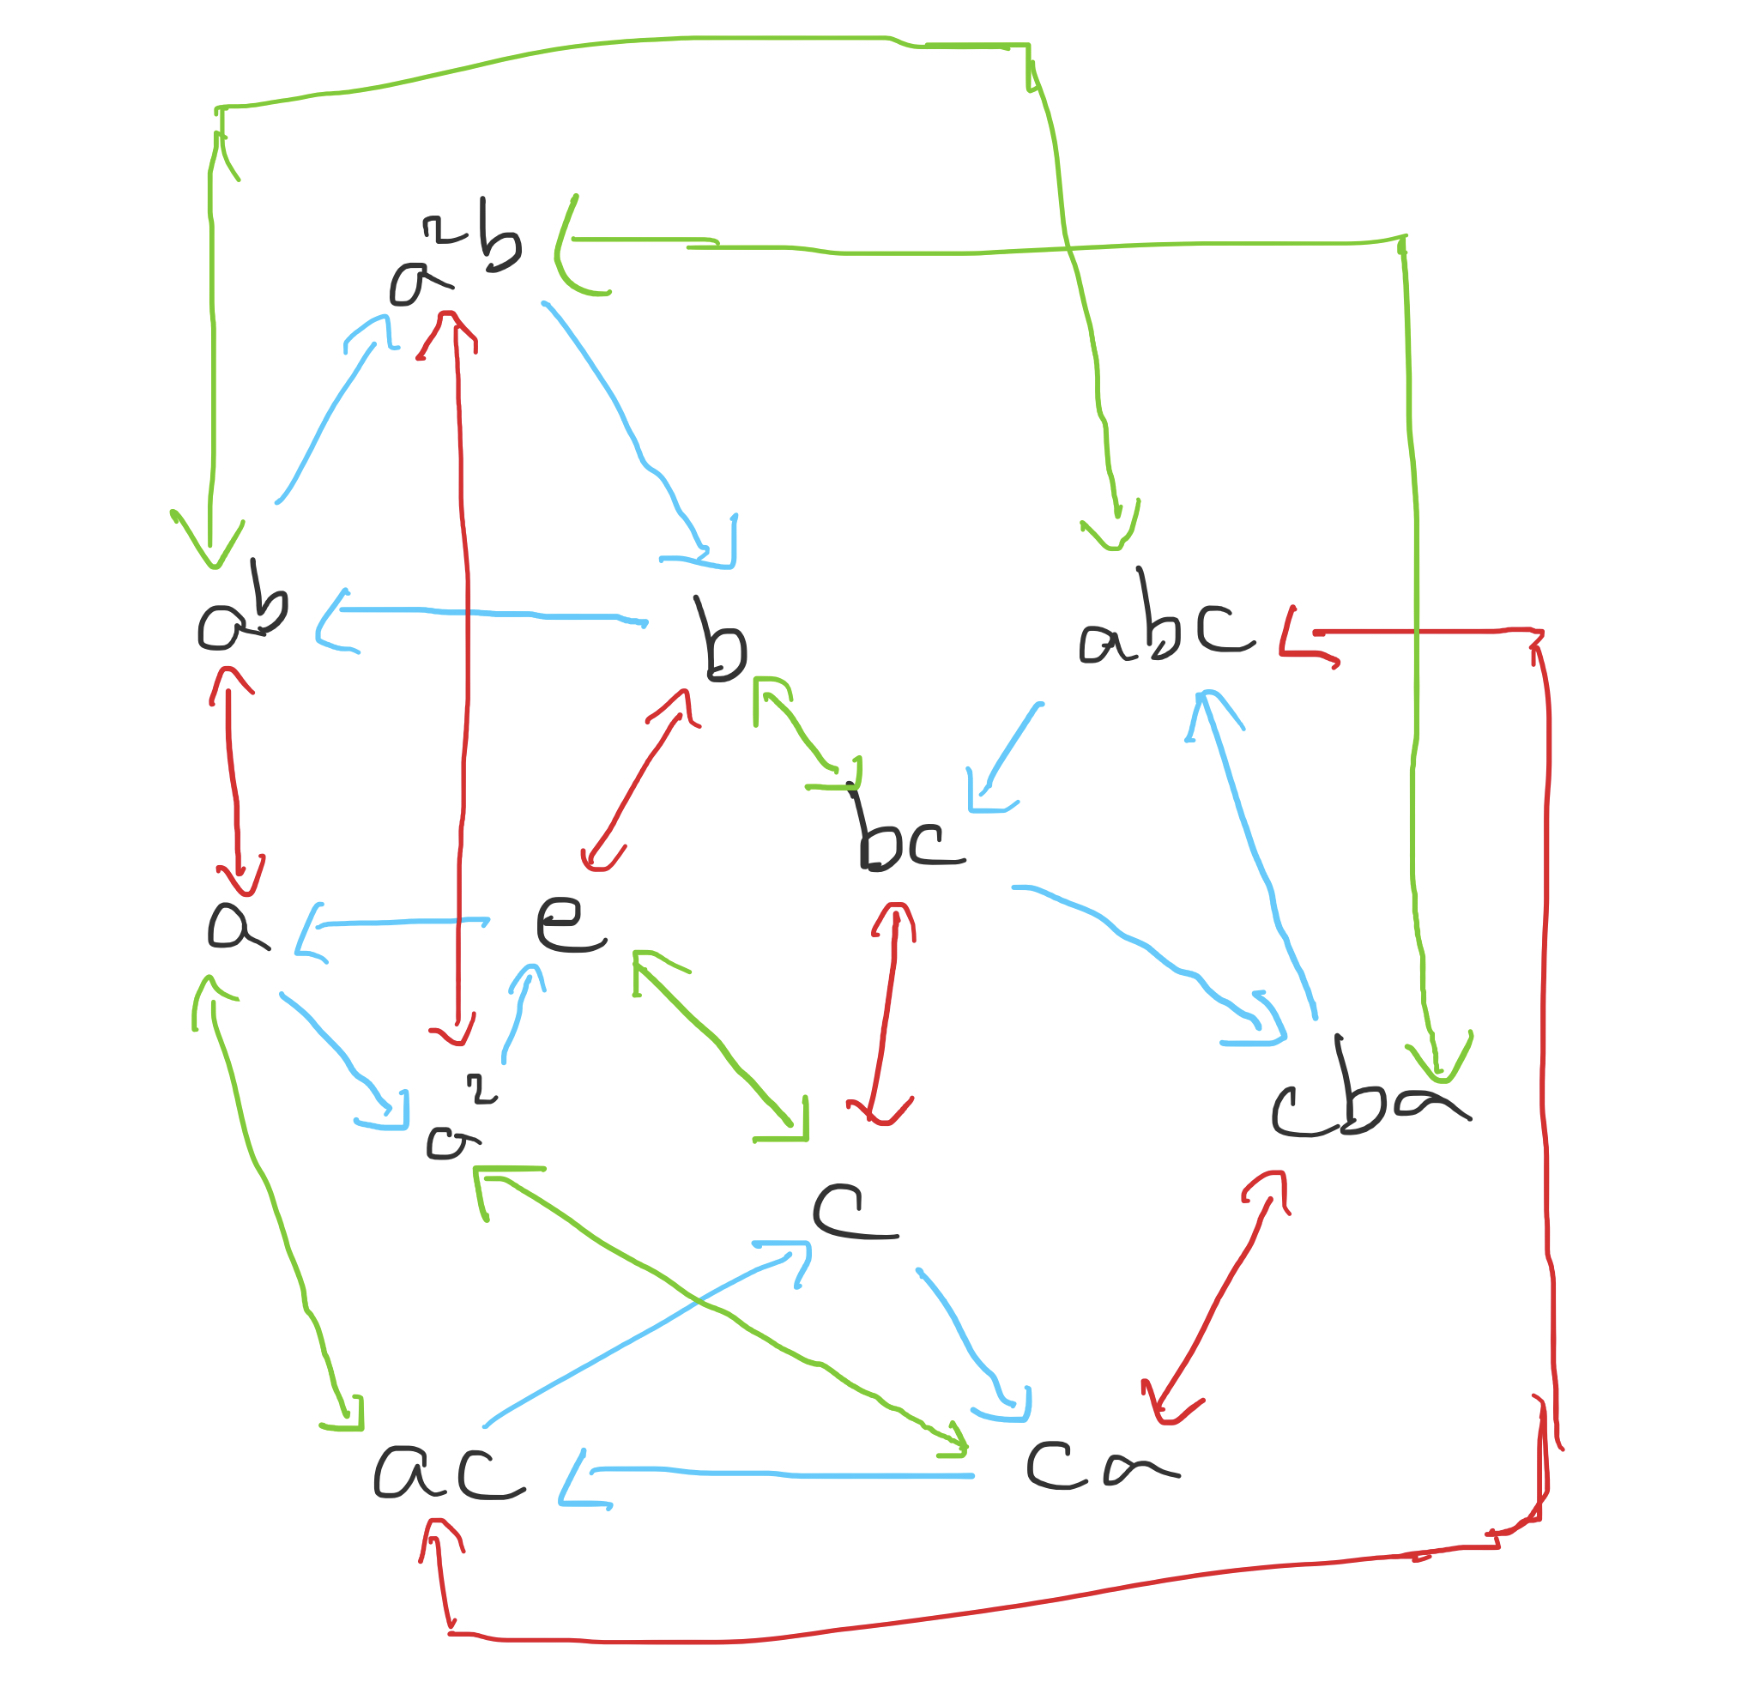 a²b
ab
b
abc
bc
a
e
a²
cba
c
ac
ca